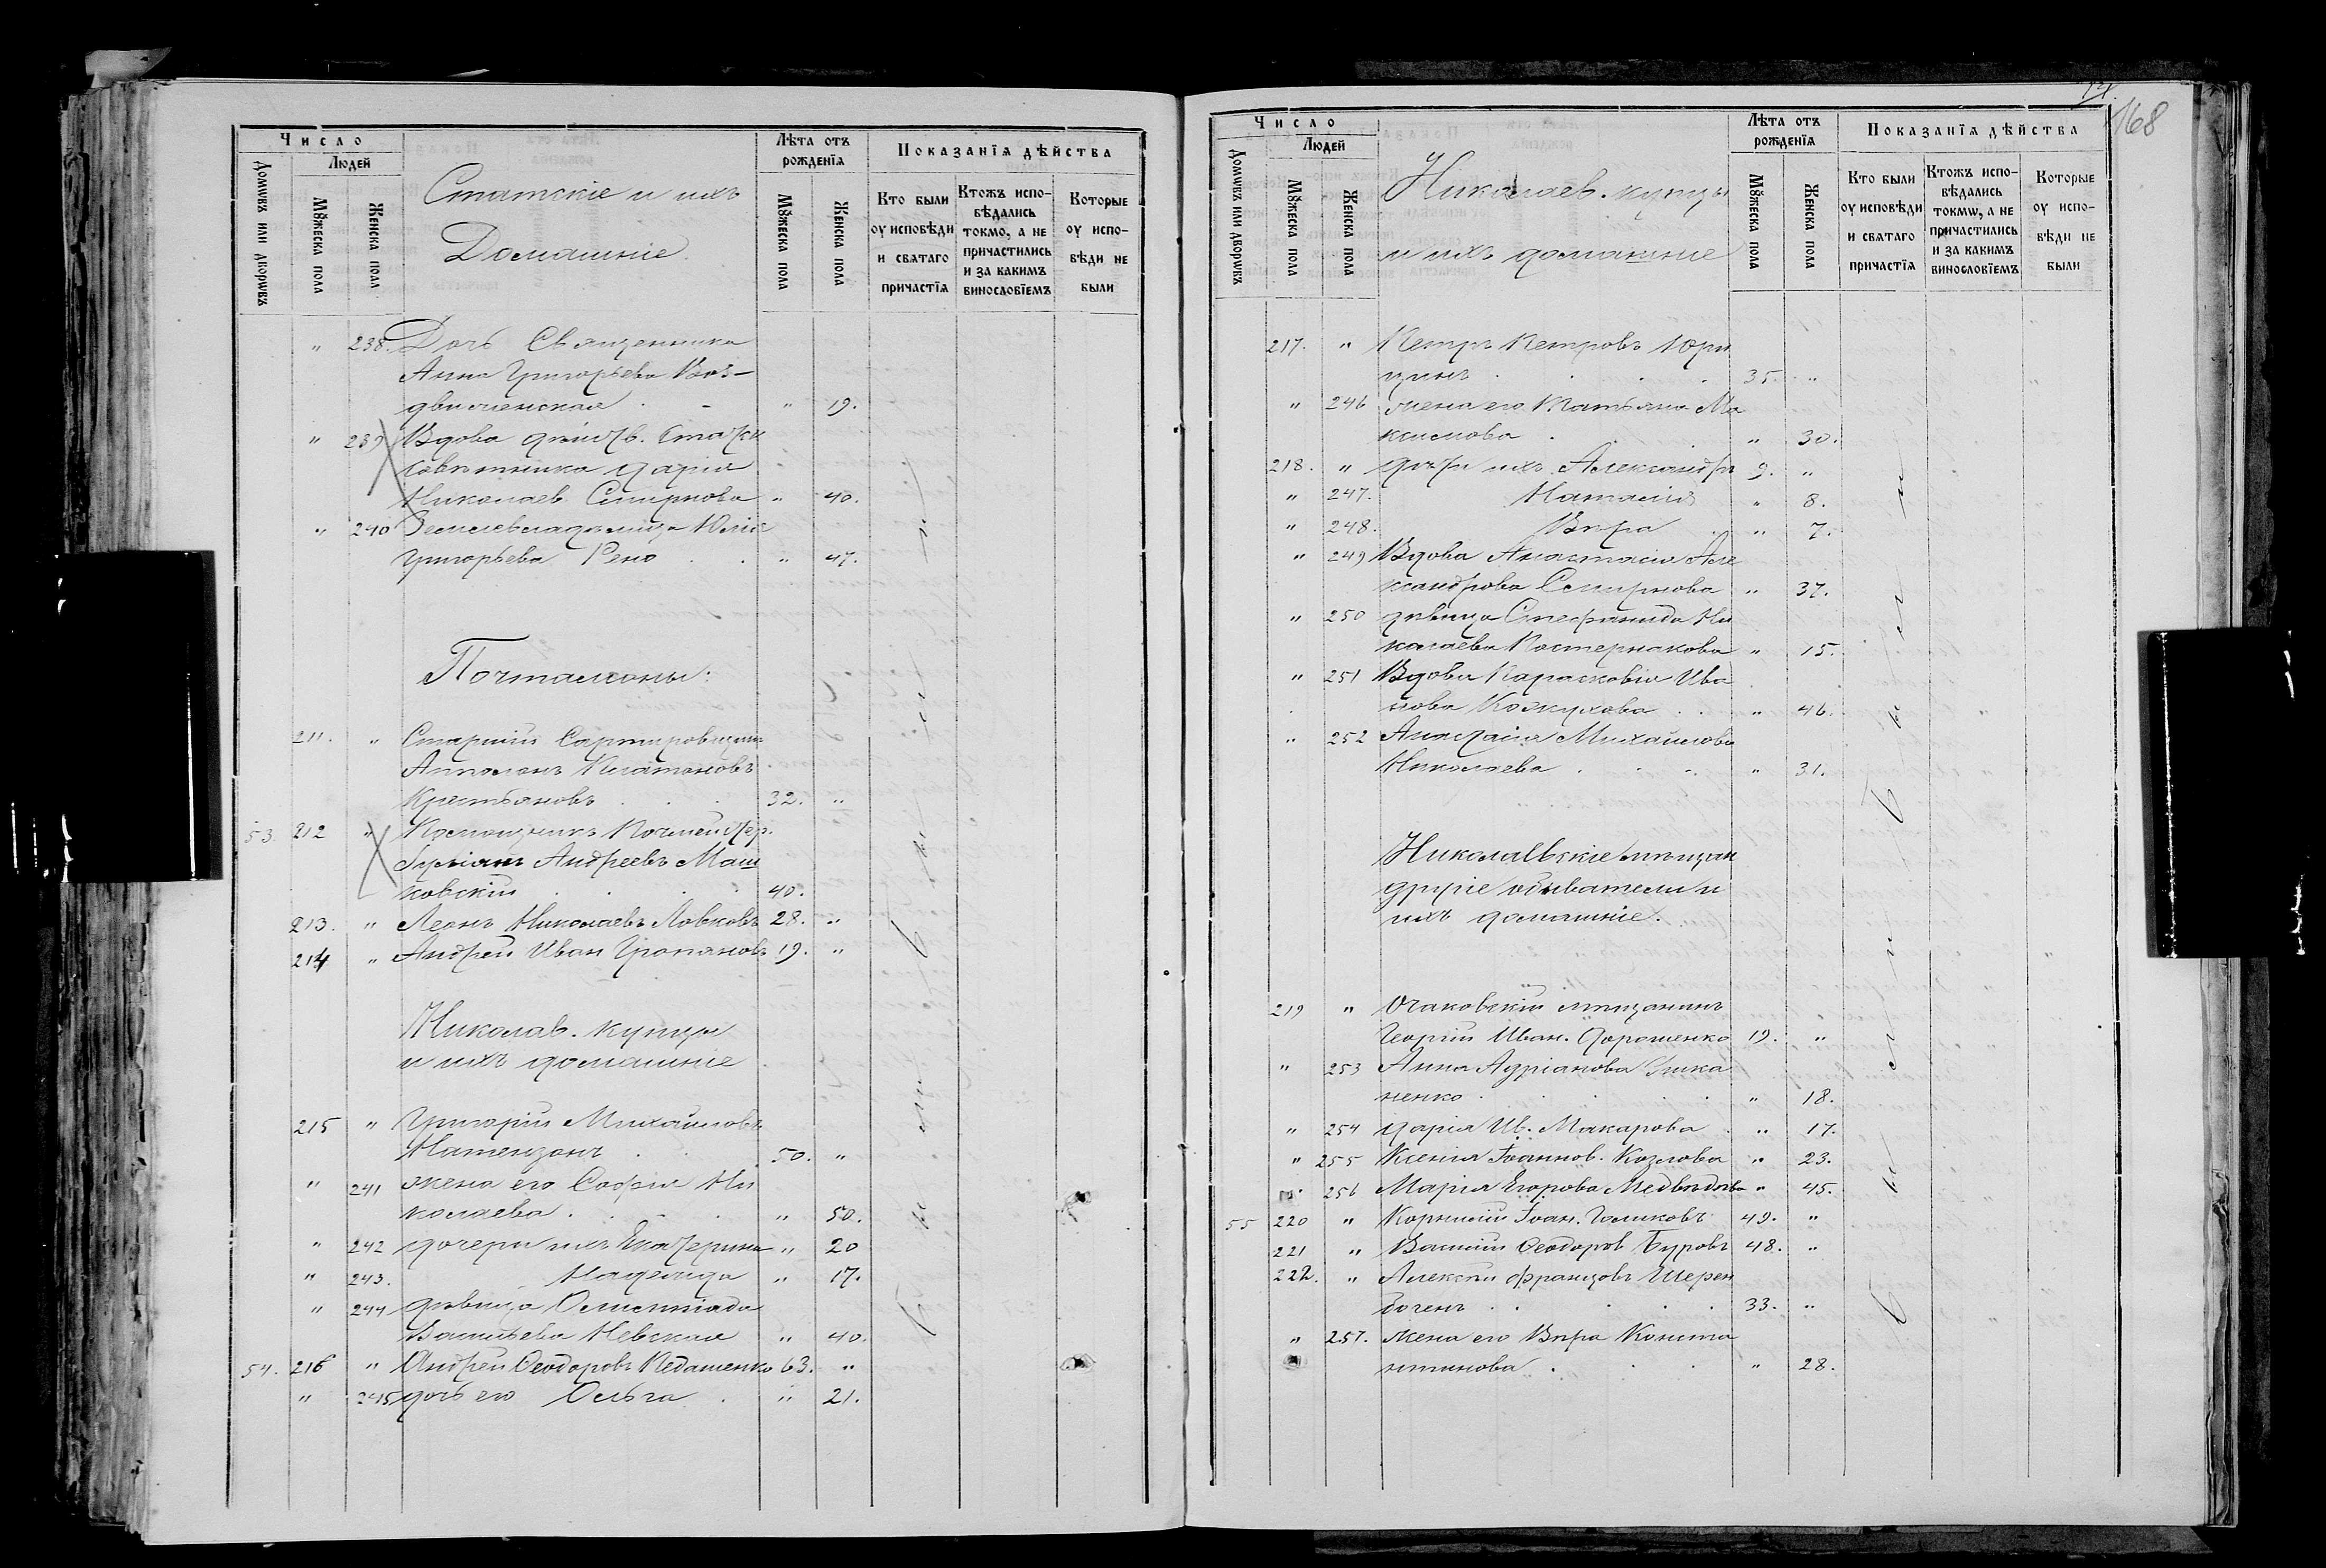 Число
Людей
Домωвъ или дворωвъ
Мꙋжеска пола
Женска пола
Статскіе и ихъ
Домашніе.
Лѣта отъ
рожденїѧ
Мꙋжеска пола
Женска пола
Показанїѧ дѣйства
Кто были
оу исповѣди
и свѧтаго
причастїѧ
Ктожъ испо-
вѣдались
токмо, а не
причастились
и за какимъ
винословїемъ
Которые
оу испо-
вѣди не
были
" 238. Дочь Священника
Анна Григорьева Воз-
движенская . - " 19.
" 239 Вдова дѣйств. Статск
совѣтника Дарія
Николаев Смирнова " 40.
" 240 Землевладѣлица Юлія
Григорьева Рено . . " 47.
Почталіоны:
211. " Старшій Сортировщикъ
Аполонъ Платоновъ
Крестьяновъ . . 32. "
53. 212 " Помощникъ Почмейстер.
Андреевъ Маш
ковскій . . . 40.
213. " Леонъ Николаевъ Ловковъ 28. "
214 " Андрей Иван 19. "
Николав. купцы
и ихъ домашніе
215 " Григорій Михайловъ
Натензонъ . . 50. "
" 241 жена его Софія Ни
колаева . . . " 50.
" 242 дочери ихъ Екатерина " 20
" 243. Надежда " 17.
" 244 дѣвица Олимпіада
Васильева Невская " 40.
54. 216 " Андрей Ѳеодоровъ Педашенко 63. "
" 245 дочь его Ольга . " 21.
бы ли
168
Число
Людей
Домωвъ или дворωвъ
Мꙋжеска пола
Женска пола
Николаев. купцы
и ихъ домашніе
Лѣта отъ
рожденїѧ
Мꙋжеска пола
Женска пола
Показанїѧ дѣйства
Кто были
оу исповѣди
и свѧтаго
причастїѧ
Ктожъ испо-
вѣдались
токмω, а не
причастились
и за какимъ
винословїемъ
Которые
оу испо-
вѣди не
были
217. " Петръ Петровъ Юри
цынъ . . . . 35. "
" 246 жена его Татьяна Ма
ксимова . . . " 30.
218. " дѣти ихъ Александръ 9. "
" 247. Наталія " 8.
" 248. Вѣра . . " 7.
" 249 Вдова Анастасія Але
ксандрова Смирнова " 37.
" 250 дѣвица Стефанида Ни
колаева Постернакова " 15.
" 251 Вдова Параскевія Ива
нова Кожухова . . " 46.
" 252 Анастасія Михайлова
Николаева . . . " 31.
Николаевскіе мѣщан
другіе обыватели и
ихъ домашніе.
219 " Очаковскій мѣщанинъ
Георгій Иван. Дорошенко 19. "
" 253 Анна Адріанова
ненко . . . . . " 18.
" 254 Дарія Ив. Макарова . " 17.
" 255 Ксенія Іоаннов. Козлова " 23.
" 256 Марія Егорова Медвѣдева " 45.
55 220 " Корнилій Іоан. Голиковъ 49. "
221 " Василій Ѳеодоров Буровъ 48. "
222. " Алексѣй Францовъ Шерен
боченъ . . . . 33. "
" 257. жена его Вѣра Конста
нтинова . . . " 28.